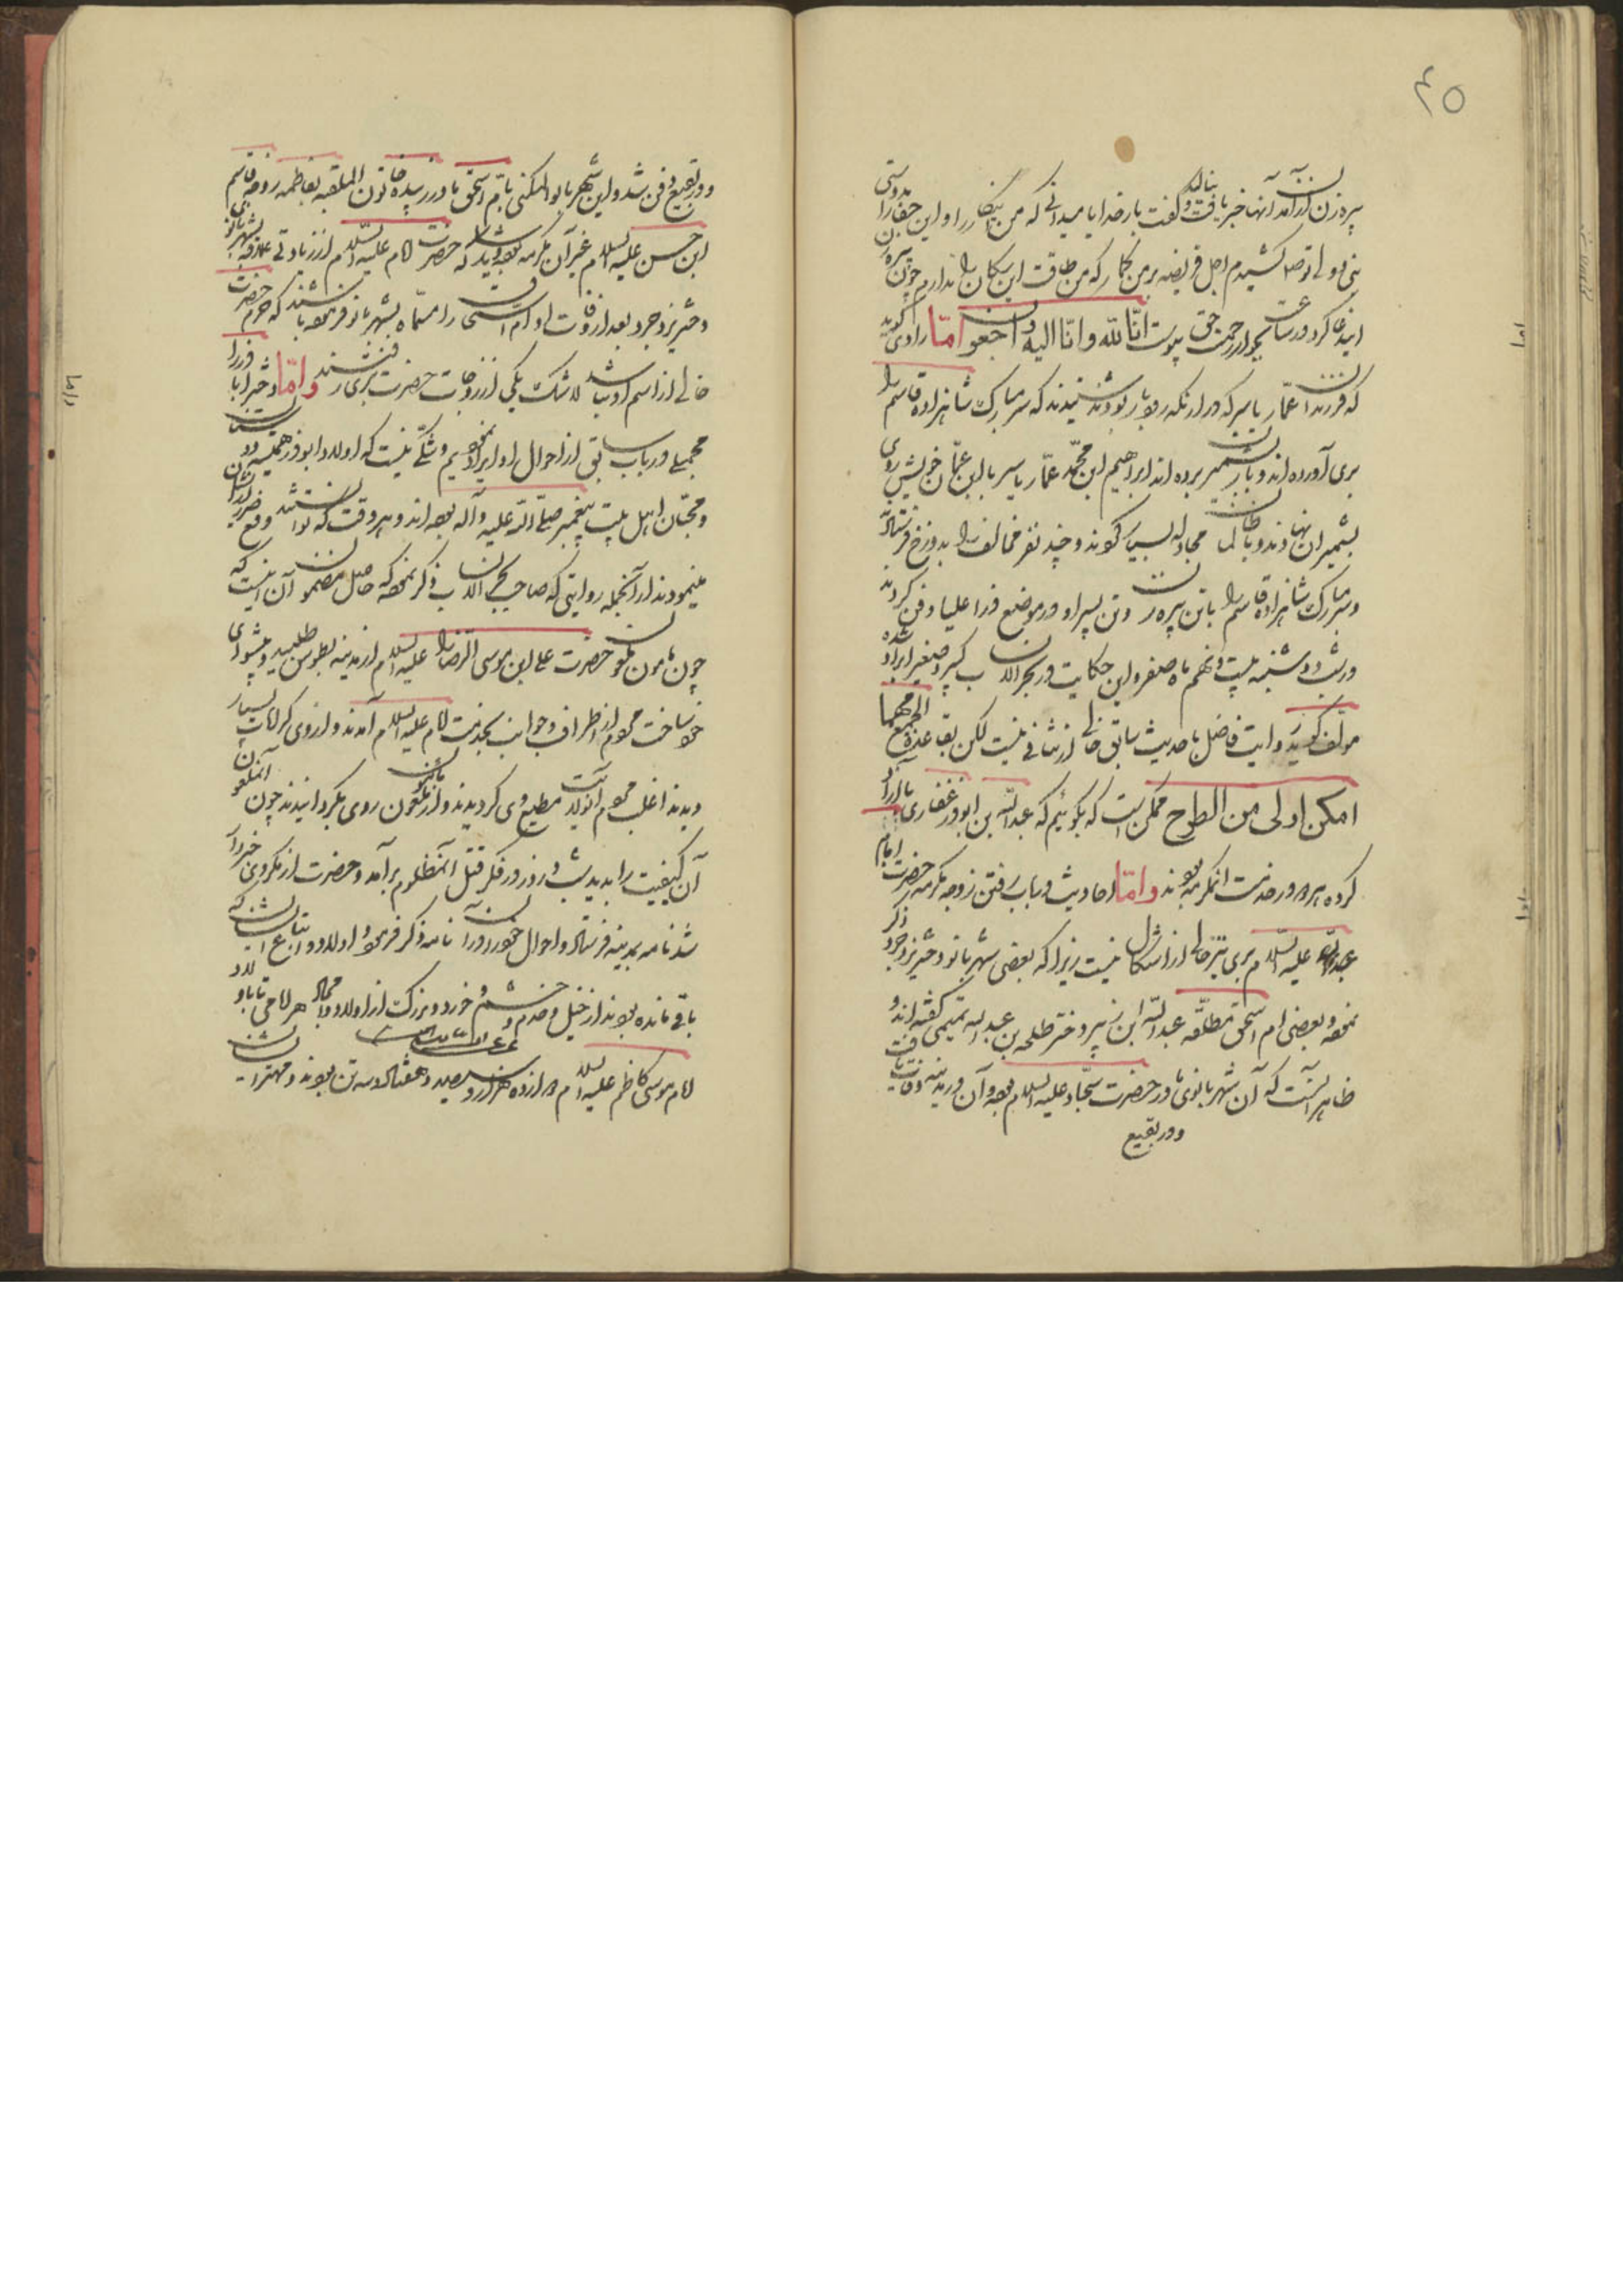 ۴۵
پیرزن از آمدن آنها خبر یافت بنالید و گفت بار خدایا میدانی که من این کار را و این جفا را بدوستی
بنی و ولی تو صلا کشیدم اجل فریضه بر من بگمار که من طاقت این سگان را ندارم چون پیره زن
این دعا کرد در ساعت بجوار رحمت حق پیوست انّا للّه وانّا الیه راجعون امّا راوی گوید
که فرزندان عمّار یاسر که در ارنکه رودبار بودند شنیدند که سر مبارک شاهزاده قاسم را
بری آورده اند و بشمیران برده اند ابراهیم ابن محمّد عمّار یاسر با ابن عمّان خویش روی
بشمیران نهادند و با ظالمان مجادله بسیار کردند و چند نفر مخالف را بدوزخ فرستاد
و سر مبارک شاهزاده قاسم را با تن پیره زن و تن پسر او در موضع فرا علیا دفن کردند
در شب دوشنبه بیست و نهم ماه صفر و این حکایت در بحر الانساب کبیر و صغیر ایراد شده
مولف گوید روایت فاضل با حدیث سابق خالی از تنافی نیست لکن بقاعدهٔ الجمع مهما
امکن اولی من الطرح ممکن است که بگوئیم که عبد اللّه بن ابوذر غفاری با او
کرده هر دو در خدمت انمکرمه بودند و امّا احادیث در باب رفتن زوجه مکرمه حضرت امام
علیه السلام بری نیز خالی از اشکال نیست زیرا که بعضی شهربانو دختر یزدجرد ذکر
نموده و بعضی ام اسحق مطلّقه عبد اللّه ابن زبیر و دختر طلحه بن عبد الله تمیمی گفته اند و
ظاهر آنست که آن شهربانوی مادر حضرت سجّاد علیه السلام بوده و آن در مدینه وفات یافت
و در بقیع
و در بقیع دفن شد و این شهربانو المکنی بامّ اسحق مادر سیده خاتون الملقبه بفاطمه زوجه قاسم
ابن حسن علیه السلام غیر آن مکرمه بوده و شاید که حضرت امام علیه السلام از زیادتی علاقه بشهربانو
دختر یزدجرد بعد از وفات او ام اسحق را مسمّاه بشهربانو فرموده باشند که حرم حضرت
خالی از اسم او نباشد لاشک یکی از زوجات حضرت بری رفتند و امّا دختر ابا ذر را
مجملی در باب سابق از احوال او ایراد نمودیم و شکّی نیست که اولاد ابوذر همیشه دوستان
و محبّان اهل بیت پیغمبر صلّی اللّه علیه و آله بوده اند و هر وقت که توانستند دفع ضرر از ایشان
مینمودند از آنجمله روایتی که صاحب بحر الانساب ذکر نموده که حاصل مضمون آن اینست که
چون مامون ملعون حضرت علی ابن موسی الرضا را علیه السلام از مدینه بطوس طلبید و پیشوای
خود ساخت مردم از اطراف و جوانب بخدمت امام علیه السلام آمدند و از وی کرامات بسیار
دیدند اغلب مردم آنولایت مطیع وی گردیدند و از مامون ملعون روی بگردانیدند چون آنملعون
آن کیفیت را بدید شب و روز در فکر قتل آنمظلوم برآمد و حضرت از مکر وی خبردار
شد نامه بمدینه فرستاد و احوال خود را در آن نامه ذکر فرمود و اولاد و اتباع ایشان که
باقی مانده بودند از خیل و خدم و حشم و خورد و بزرگ از اولاد
امام موسی کاظم علیه السلام دوازده هزار و سیصد و هفتاد و سه تن بودند و مهتر ایشان